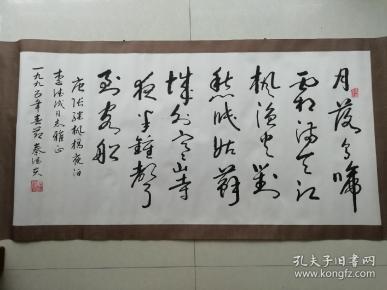 月落乌啼
霜满天江
枫渔火对
愁眠姑苏
城外寒山寺
夜半钟声
到客船
唐张继枫桥夜泊
李法成同志雅正
一九九五年春节 秦德文
孔夫子旧书网